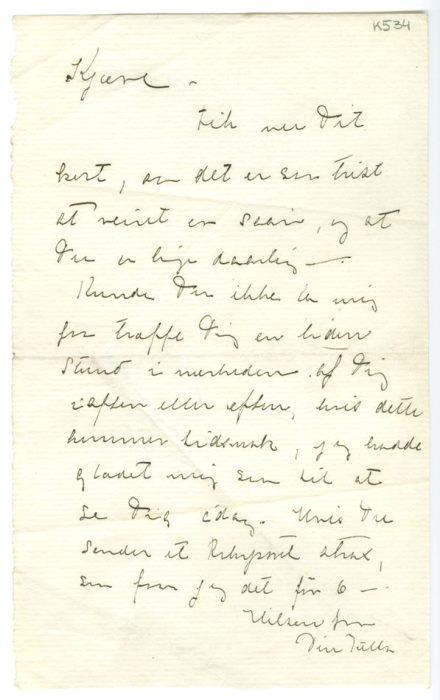 K534
Kjære –
Fik nu Dit
kort, og det er saa trist
at veiret er saan, og at
Du er lige daarlig –.
Kunde Du ikke la mig
faa træffe Dig en liden
Stund i nærheden af Dig
iaften eller efterm, hvis dette
kommer tidsnok, jeg hadde
glædet mig saa til at
se Dig idag. Hvis Du
sender et Rørpost strax,
saa faar jeg det før 6 –
Hilsen fra
Din Tulla